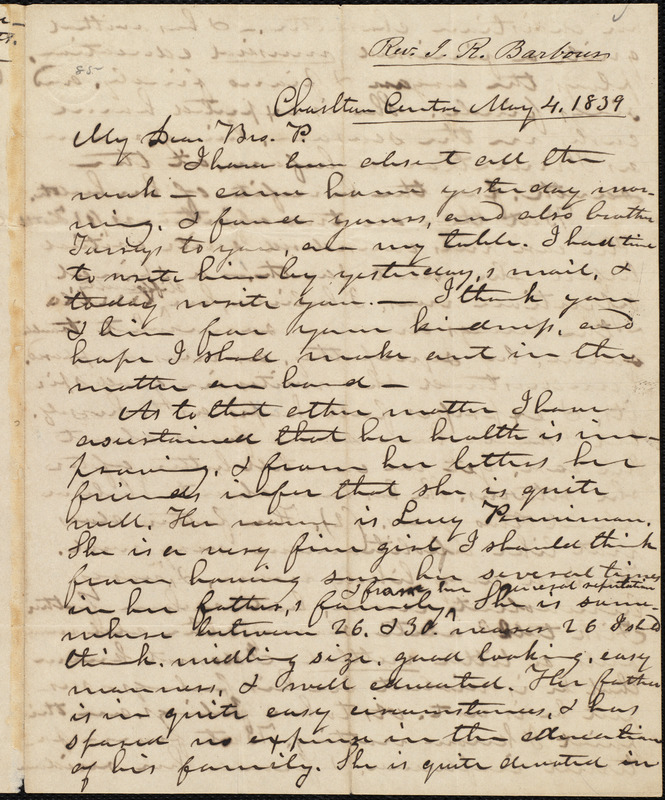 Rev. I. R. Barbour
85-
Charlton Centre May 4, 1839
My Dear Bro. P.
I have been absent all the
week - came home yesterday mor-
ning, & found yours, and also brother
to you, on my table. I had time
to write him by yesterday,s mail, &
today write you. — I thank you
& him for your kindness, and
hope I shall make out in the
matter on hand —
As to that other matter I have
asertained that her health is im-
proving, & from her letters her
friends infer that she is quite
well. Her name is Lucy Penniman.
She is a very fine girl I should think
from having seen her several times
& from her general reputation
in her father,s family. She is some-
where between 26. & 30. nearer 26 I shd
think. midling size, good looking, easy
manners, & well educated. Her father
is in quite easy circumstances, & has
spared no expense in the education
of his family. She is quite devoted in